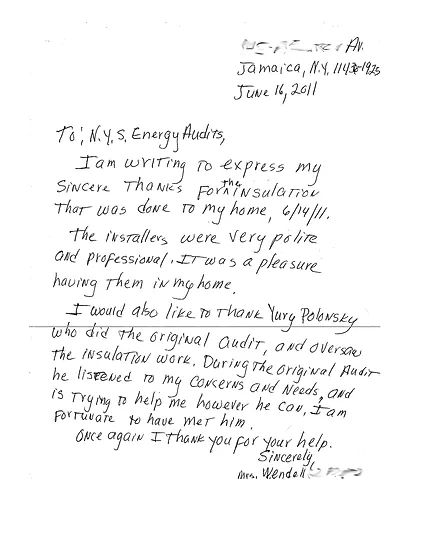 Av.
Jamaica, N.Y. 11436-1925
June 16, 2011
To: N.Y.S. Energy Audits,
I am writing to express my
sincere thanks for the insulation
that was done to my home, 6/14/11.
The installers were very polite
and professional. It was a pleasure
having them in my home.
I would also like to thank Yury Polonsky
who did the original audit, and oversaw
the insulation work. During the original Audit
he listened to my concerns and needs, and
is trying to help me however he can, I am
fortunate to have met him.
Once again I thank you for your help.
Sincerely,
Mrs. Wendell